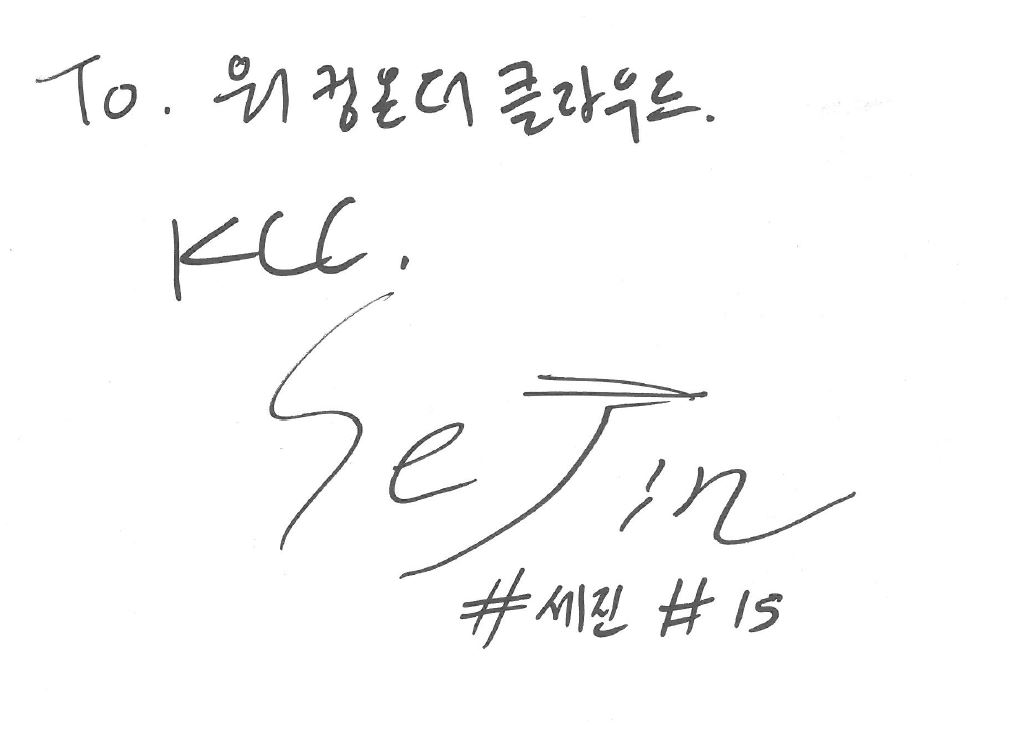 To. 워킹온더 클라우드.
KCC.
SeJin
#세진 #15